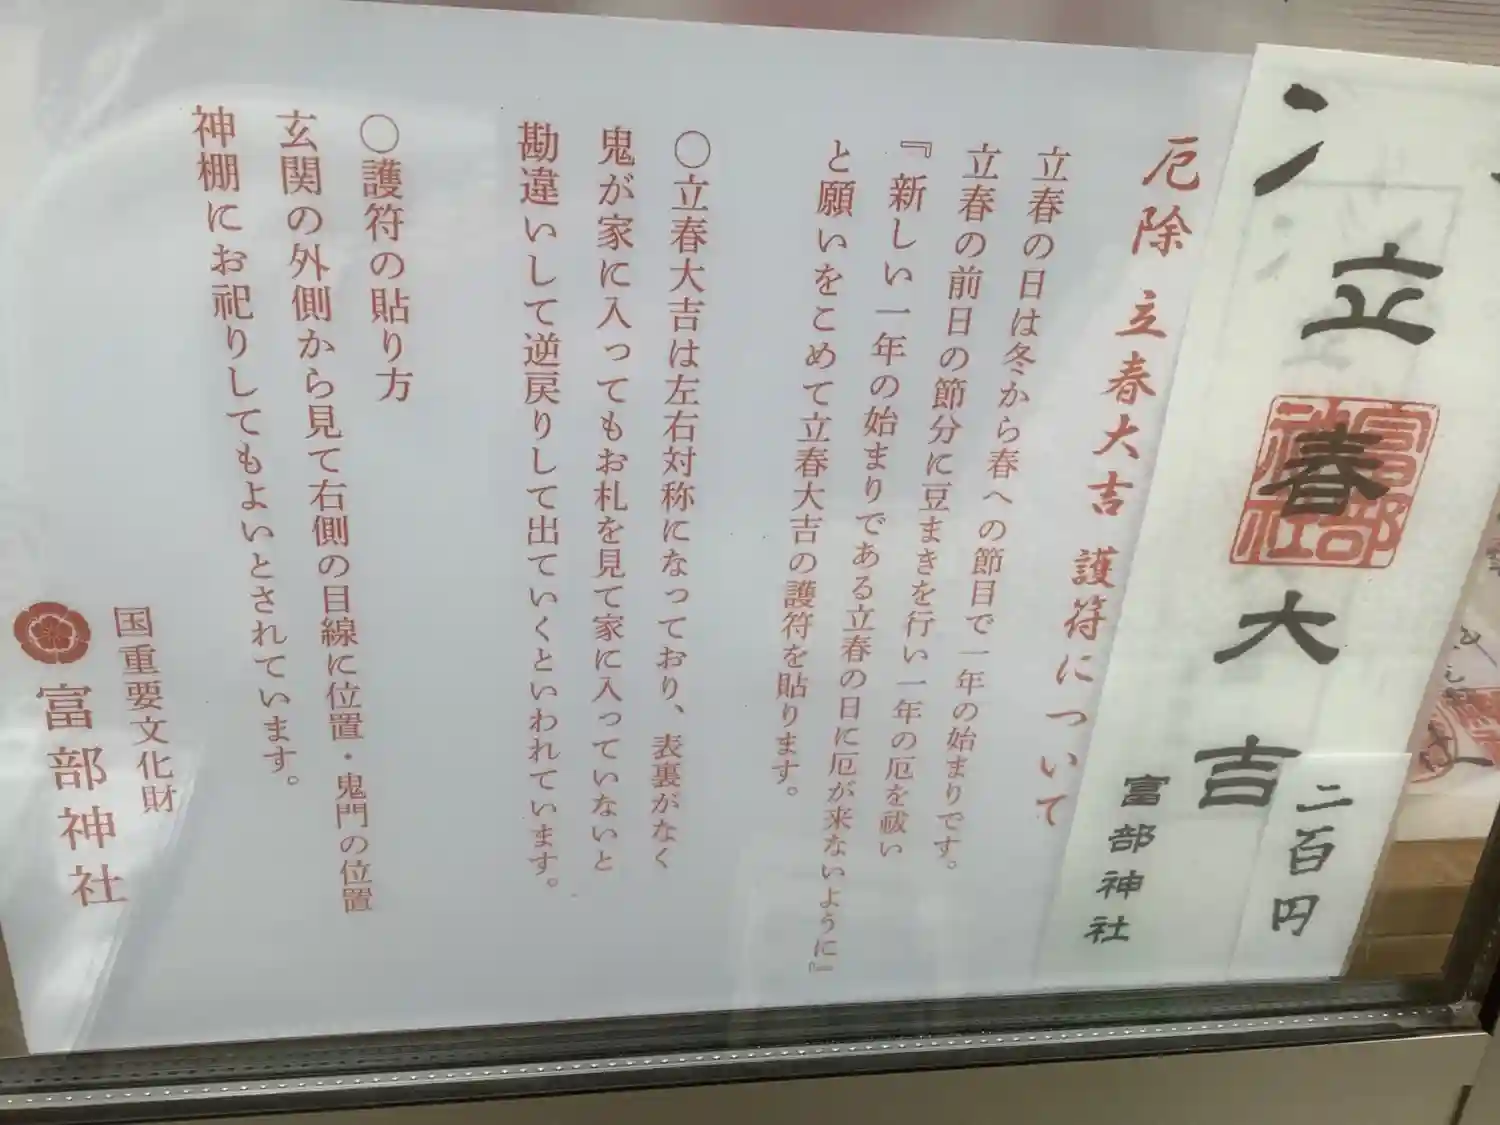 立春大吉
富部神社
富部神社
二百円
厄除 立春大吉 護符について
立春の日は冬から春への節目で一年の始まりです。
立春の前日の節分に豆まきを行い一年の厄を祓い
『新しい一年の始まりである立春の日に厄が来ないように』
と願いをこめて立春大吉の護符を貼ります。
〇立春大吉は左右対称になっており、表裏がなく
鬼が家に入ってもお札を見て家に入っていないと
勘違いして逆戻りして出ていくといわれています。
〇護符の貼り方
玄関の外側から見て右側の目線に位置・鬼門の位置
神棚にお祀りしてもよいとされています。
国重要文化財
富部神社